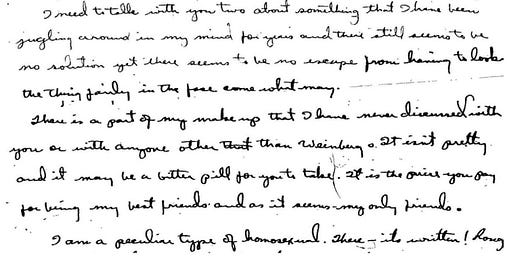 I need to talk with you two about something that I have been
juggling around in my mind for years and there still seems to be
no solution yet there seems to be no escape from having to look
the thing fairly in the face come what may.
There is a part of my make up that I have never discussed with
you or with anyone other that than Weinberg. It isn't pretty
and it may be a bitter pill for you to take. It is the price you pay
for being my best friends and as it seems my only friends.
I am a peculiar type of homosexual. There - its written! Long